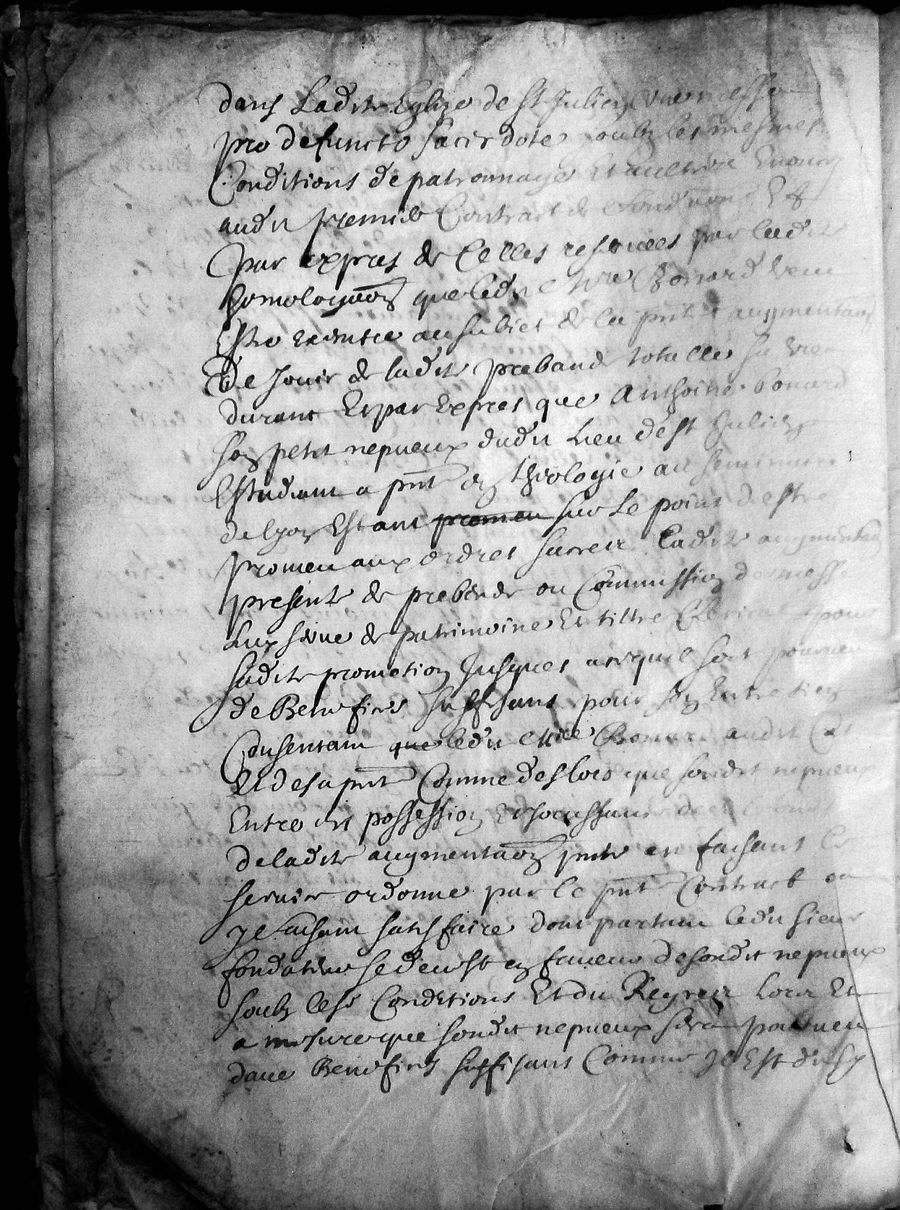 dans Ladite Eglize de St Julien une messe
pro defuncto sacerdote soubz les mesmes
Conditions de patronnages Et aultres
audit premier Contract de fondaon Et
par expres de Celles par ladite
homologaon que ledit Mre Bonard
Estre au subiet de la pnte augmentaon
De Jouir de ladite prebande totalle sa vie
durant Et par Expres que Anthoine bonard
son petit nepueux dudit Lieu de St Jullien
Estudiant a pnt en theologie au seminaire
de lyon Estant promeu sur Le point destre
promeu aux ordres sacres Ladite augmentaon
presente de prebende ou Commission de messe
Luy serue de patrimoine Et tiltre Clerical pour
sadite promotion Jusques a ce quil soit pourueu
de Benefices suffisant pour son Entretien
Consentant que ledit Mre Bonard audit Cas
Et des a pnt Comme des lors que sondit nepueux
Entre en possession Et Jouissance
de ladite augmentaon pnte en faisant le
seruice ordonne par le pnt Contract ou
Je faisant satisfaire dont partant ledit sieur
fondateur se deuest en faueur de sondit nepueux
soubz lesd Conditions Et du Regrez Lors Et
a mesure que sondit nepueux sera pourueu
daue Benefices suffisant Comme Jl Est dit Sy